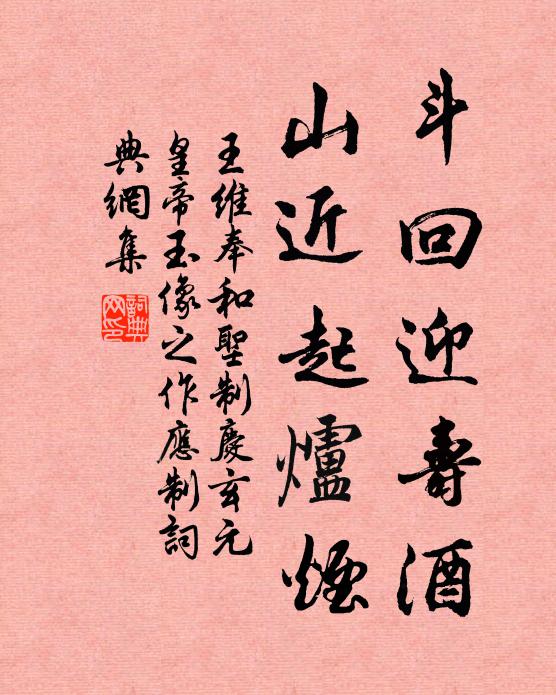 斗回迎壽酒
山近起爐煙
王維奉和聖制慶玄元
皇帝玉像之作應制詞
典網集
詞典网印